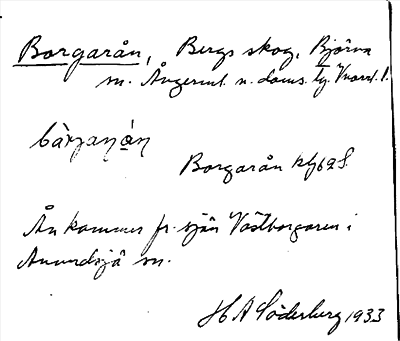 Borgarån, Bergs skog, Björna
sn. Ångerml. n. doms.
bàrjaŋàn
Borgarån
Ån kommer fr. sjön Västborgaren i
Anundsjö sn.
H A Söderberg 1933